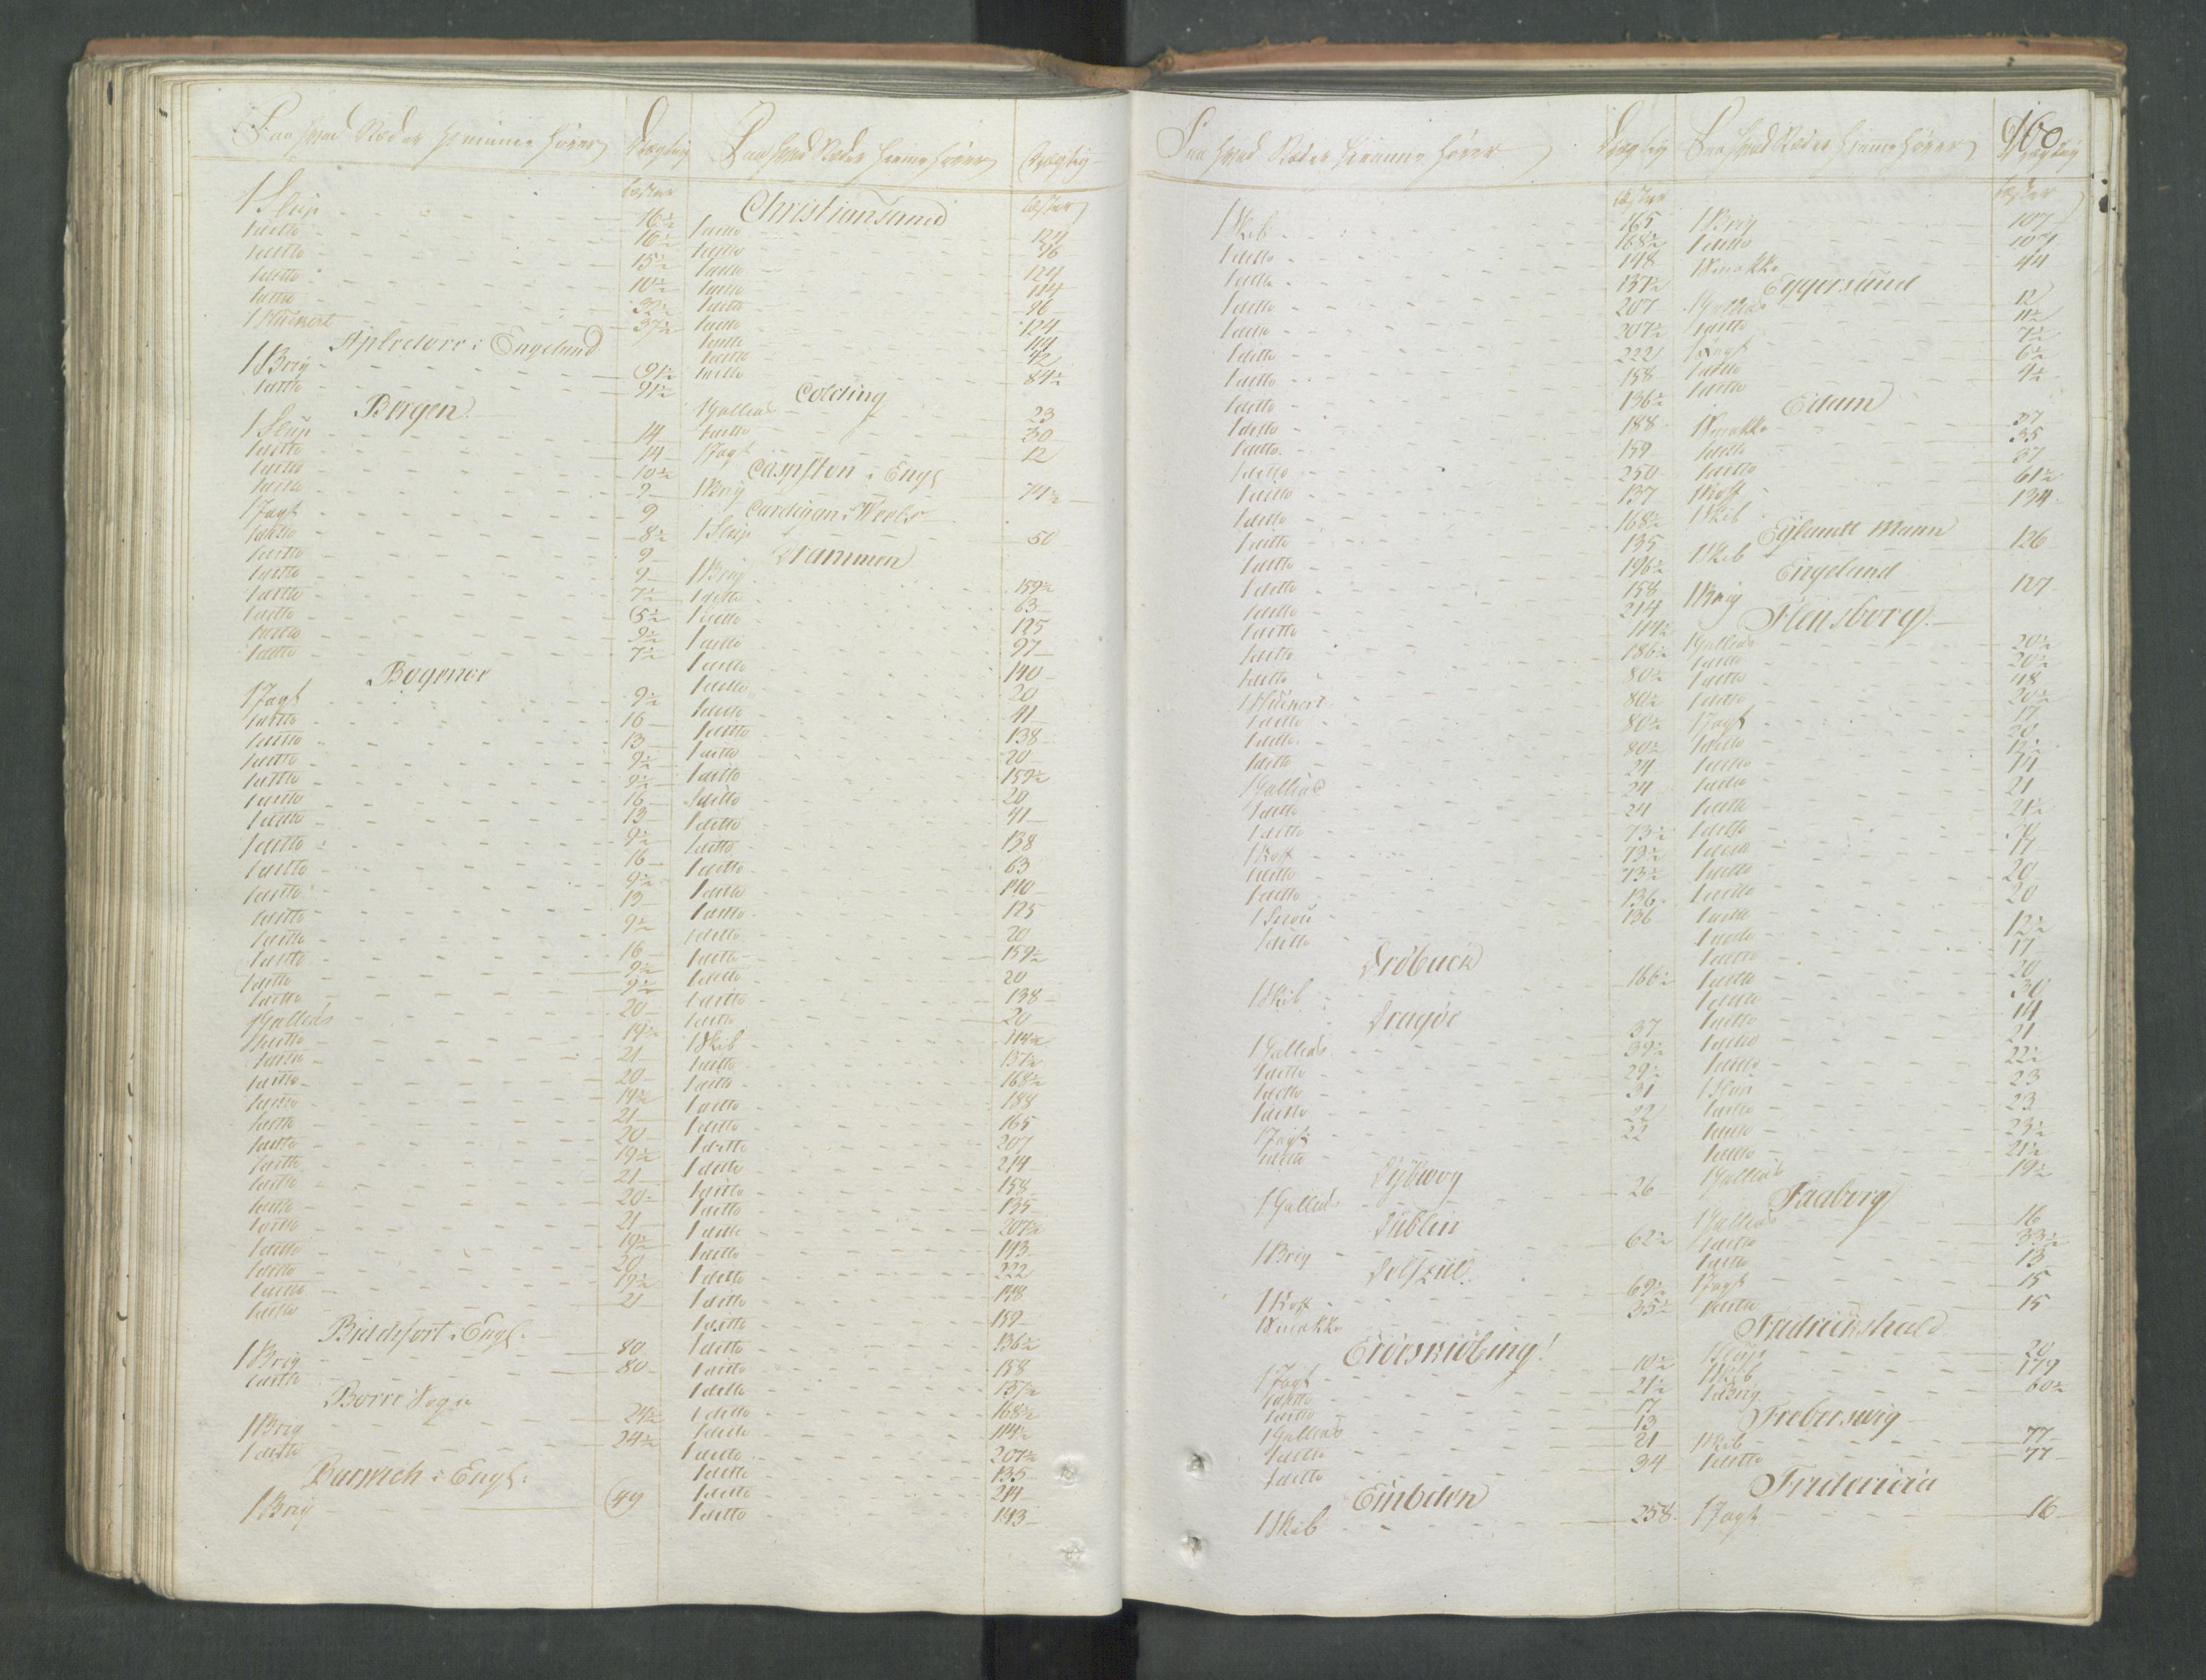 160
Drægtig
Læster
1 Slup 16½
1 ditto 16½
1 ditto 15½
1 ditto 10½
1 ditto 32½
1 Huckert 37½
Apledore i Engeland
1 Brig 91½
1 ditto 91½
Bergen
1 Slup 14
1 ditto 14
1 ditto 10½
1 ditto 9
1 Jagt 9
1 ditto 8½
1 ditto 9
1 ditto 9
1 ditto 7½
1 ditto 5½
1 ditto 9½
1 ditto 7½
Bogense
1 Jagt 9½
1 ditto 16
1 ditto 13
1 ditto 9½
1 ditto 9½
1 ditto 16
1 ditto 13
1 ditto 9½
1 ditto 16
1 ditto 9½
1 ditto 13
1 ditto 9½
1 ditto 16
1 ditto 9½
1 ditto 9½
1 Gallias 20
1 ditto 19½
1 ditto 21
1 ditto 20
1 ditto 19½
1 ditto 21
1 ditto 20
1 ditto 19½
1 ditto 21
1 ditto 20
1 ditto 21
1 ditto 19½
1 ditto 20
1 ditto 19½
1 ditto 21
Biddefort i Engl:
1 Brig 80
1 ditto 80
Borre Sogn
1 Brig 24½
1 ditto 24½
Barwich i Engl:
1 Brig 49
Drægtig
Læster
Christiansand
1 ditto 124
1 ditto 96
1 ditto 124
1 ditto 114
1 ditto 96
1 ditto 124
1 ditto 114
1 ditto 42
1 ditto 84½
Colding
1 Gallias 23
1 ditto 30
1 Jagt 12
i Engl
1 Brig 74½
Cardigan i Wales
1 Slup 50
Drammen
1 Brig 159½
1 ditto 63
1 ditto 125
1 ditto 97
1 ditto 140
1 ditto 20
1 ditto 41
1 ditto 138
1 ditto 20
1 ditto 159½
1 ditto 20
1 ditto 41
1 ditto 138
1 ditto 63
1 ditto 140
1 ditto 125
1 ditto 20
1 ditto 159½
1 ditto 20
1 ditto 138
1 ditto 20
1 Skib 114½
1 ditto 137½
1 ditto 168½
1 ditto 188
1 ditto 165
1 ditto 207
1 ditto 214
1 ditto 158
1 ditto 135
1 ditto 207½
1 ditto 143
1 ditto 222
1 ditto 148
1 ditto 159
1 ditto 136½
1 ditto 158
1 ditto 137½
1 ditto 168½
1 ditto 114½
1 ditto 207½
1 ditto 135
1 ditto 214
1 ditto 143
Drægtig
Læster
1 Skib 165
1 ditto 168½
1 ditto 148
1 ditto 137½
1 ditto 207
1 ditto 207½
1 ditto 222
1 ditto 158
1 ditto 136½
1 ditto 188
1 ditto 159
1 ditto 250
1 ditto 137
1 ditto 168½
1 ditto 135
1 ditto 196½
1 ditto 158
1 ditto 214
1 ditto 114½
1 ditto 186½
1 ditto 80½
1 Huckert 80½
1 ditto 80½
1 ditto 80½
1 ditto 24
1 Gallias 24
1 ditto 24
1 ditto 73½
1 Koff 73½
1 ditto 73½
1 ditto 136
1 Snau 136
1 ditto
Drøbach
1 Skib 166½
Dragøe
1 Gallias 37
1 ditto 39½
1 ditto 29½
1 ditto 31
1 Jagt 22
1 ditto 22
Dybwog
1 Gallias 26
Dublin
1 Brig 62½
Delfzül
1 Koff 69½
1 Smakke 35½
Eröeskiöbing!
1 Jagt 10½
1 ditto 21½
1 ditto 17
1 Gallias 13
1 ditto 21
1 ditto 34
Embden
1 Skib 258
Læster
1 Brig 107
1 ditto 107
1 Smakke 44
Eggersund
1 Gallias 12
1 ditto 11½
1 Jagt 7½
1 ditto 6½
1 ditto 4½
Edam
1 Smakke 37
1 ditto 35
1 ditto 37
1 Koff 61½
1 Skib 134
Eylandt Mann
1 Skib 126
Engeland
1 Brig 127
Flensborg
1 Gallias 20½
1 ditto 20½
1 ditto 48
1 ditto 20½
1 Jagt 17
1 ditto 20
1 ditto 12½
1 ditto 14
1 ditto 21
1 ditto 21½
1 ditto 30
1 ditto 17
1 ditto 20
1 ditto 20
1 ditto 12½
1 ditto 17
1 ditto 20
1 ditto 30
1 ditto 14
1 ditto 21
1 ditto 22½
1 Slup 23
1 ditto 23
1 ditto 23½
1 ditto 21½
1 Gallias 19½
Faaborg
1 Gallias 16
1 ditto 33½
1 ditto 13
1 Jagt 15
1 ditto 15
Fridrickshald
1 Slup 20
1 Skib 179
1 Brig 60½
Freberswig
1 Skib 77
1 ditto 77
Fridericia
1 Jagt 16